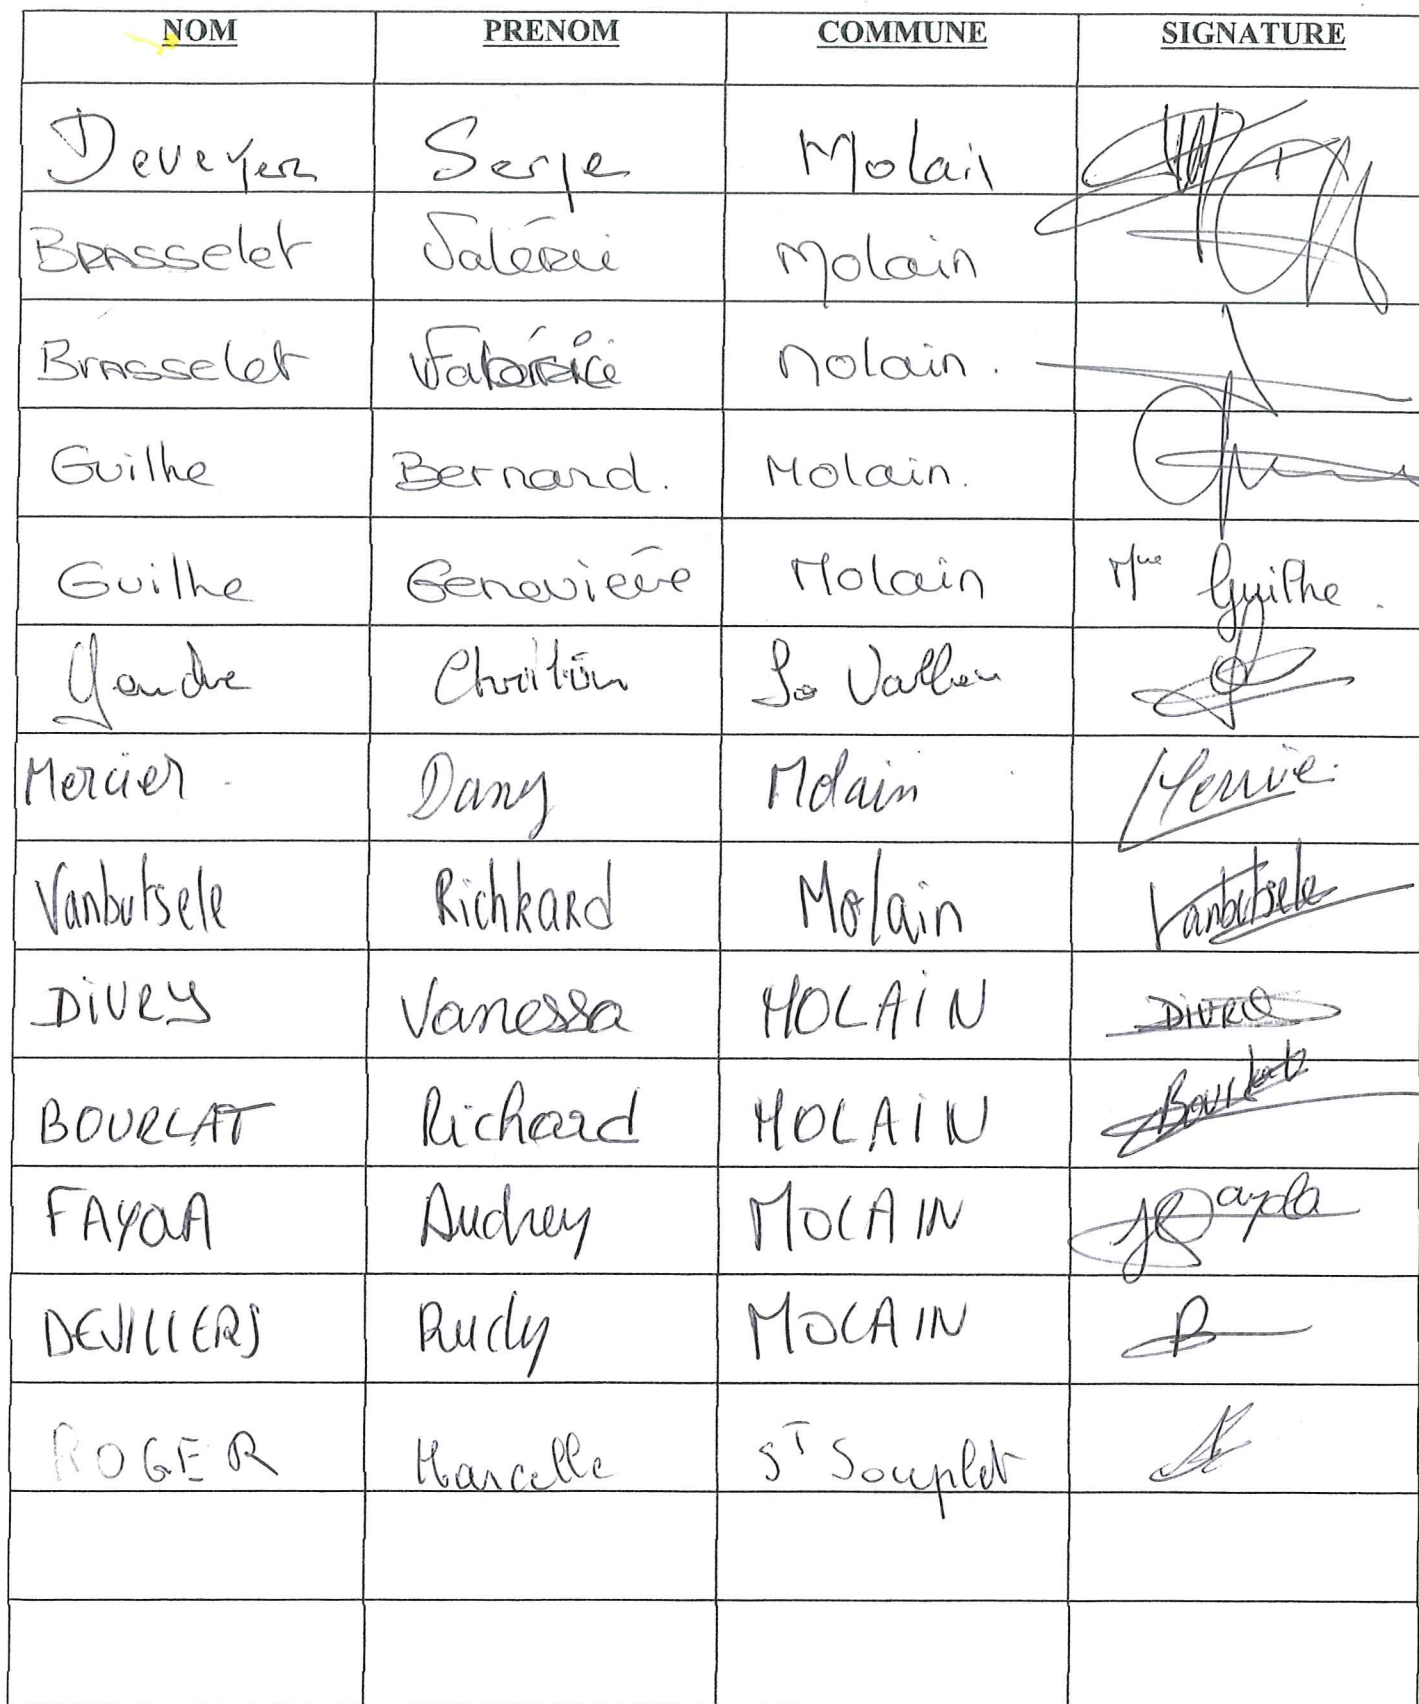 NOM PRENOM COMMUNE SIGNATURE
Serge Molain
BRASSelet Valérie Molain
BrASSelet Fabrice Molain.
Guilhe Bernard. Molain.
Guilhe Geneviève Molain Mme Guilhe.
La Vallée
Mercier Dany Molain Mercier
Vanbutsele Richkard Molain Vanbutsele
DiVRY Vanessa MOLAiN DIVRY
BOURLAT Richard MOLAiN Bourlat
FAYOLA Audrey MOLAIN Fayola
DEVILLERS Rudy MOLAIN
ROGER Marcelle ST Souplet